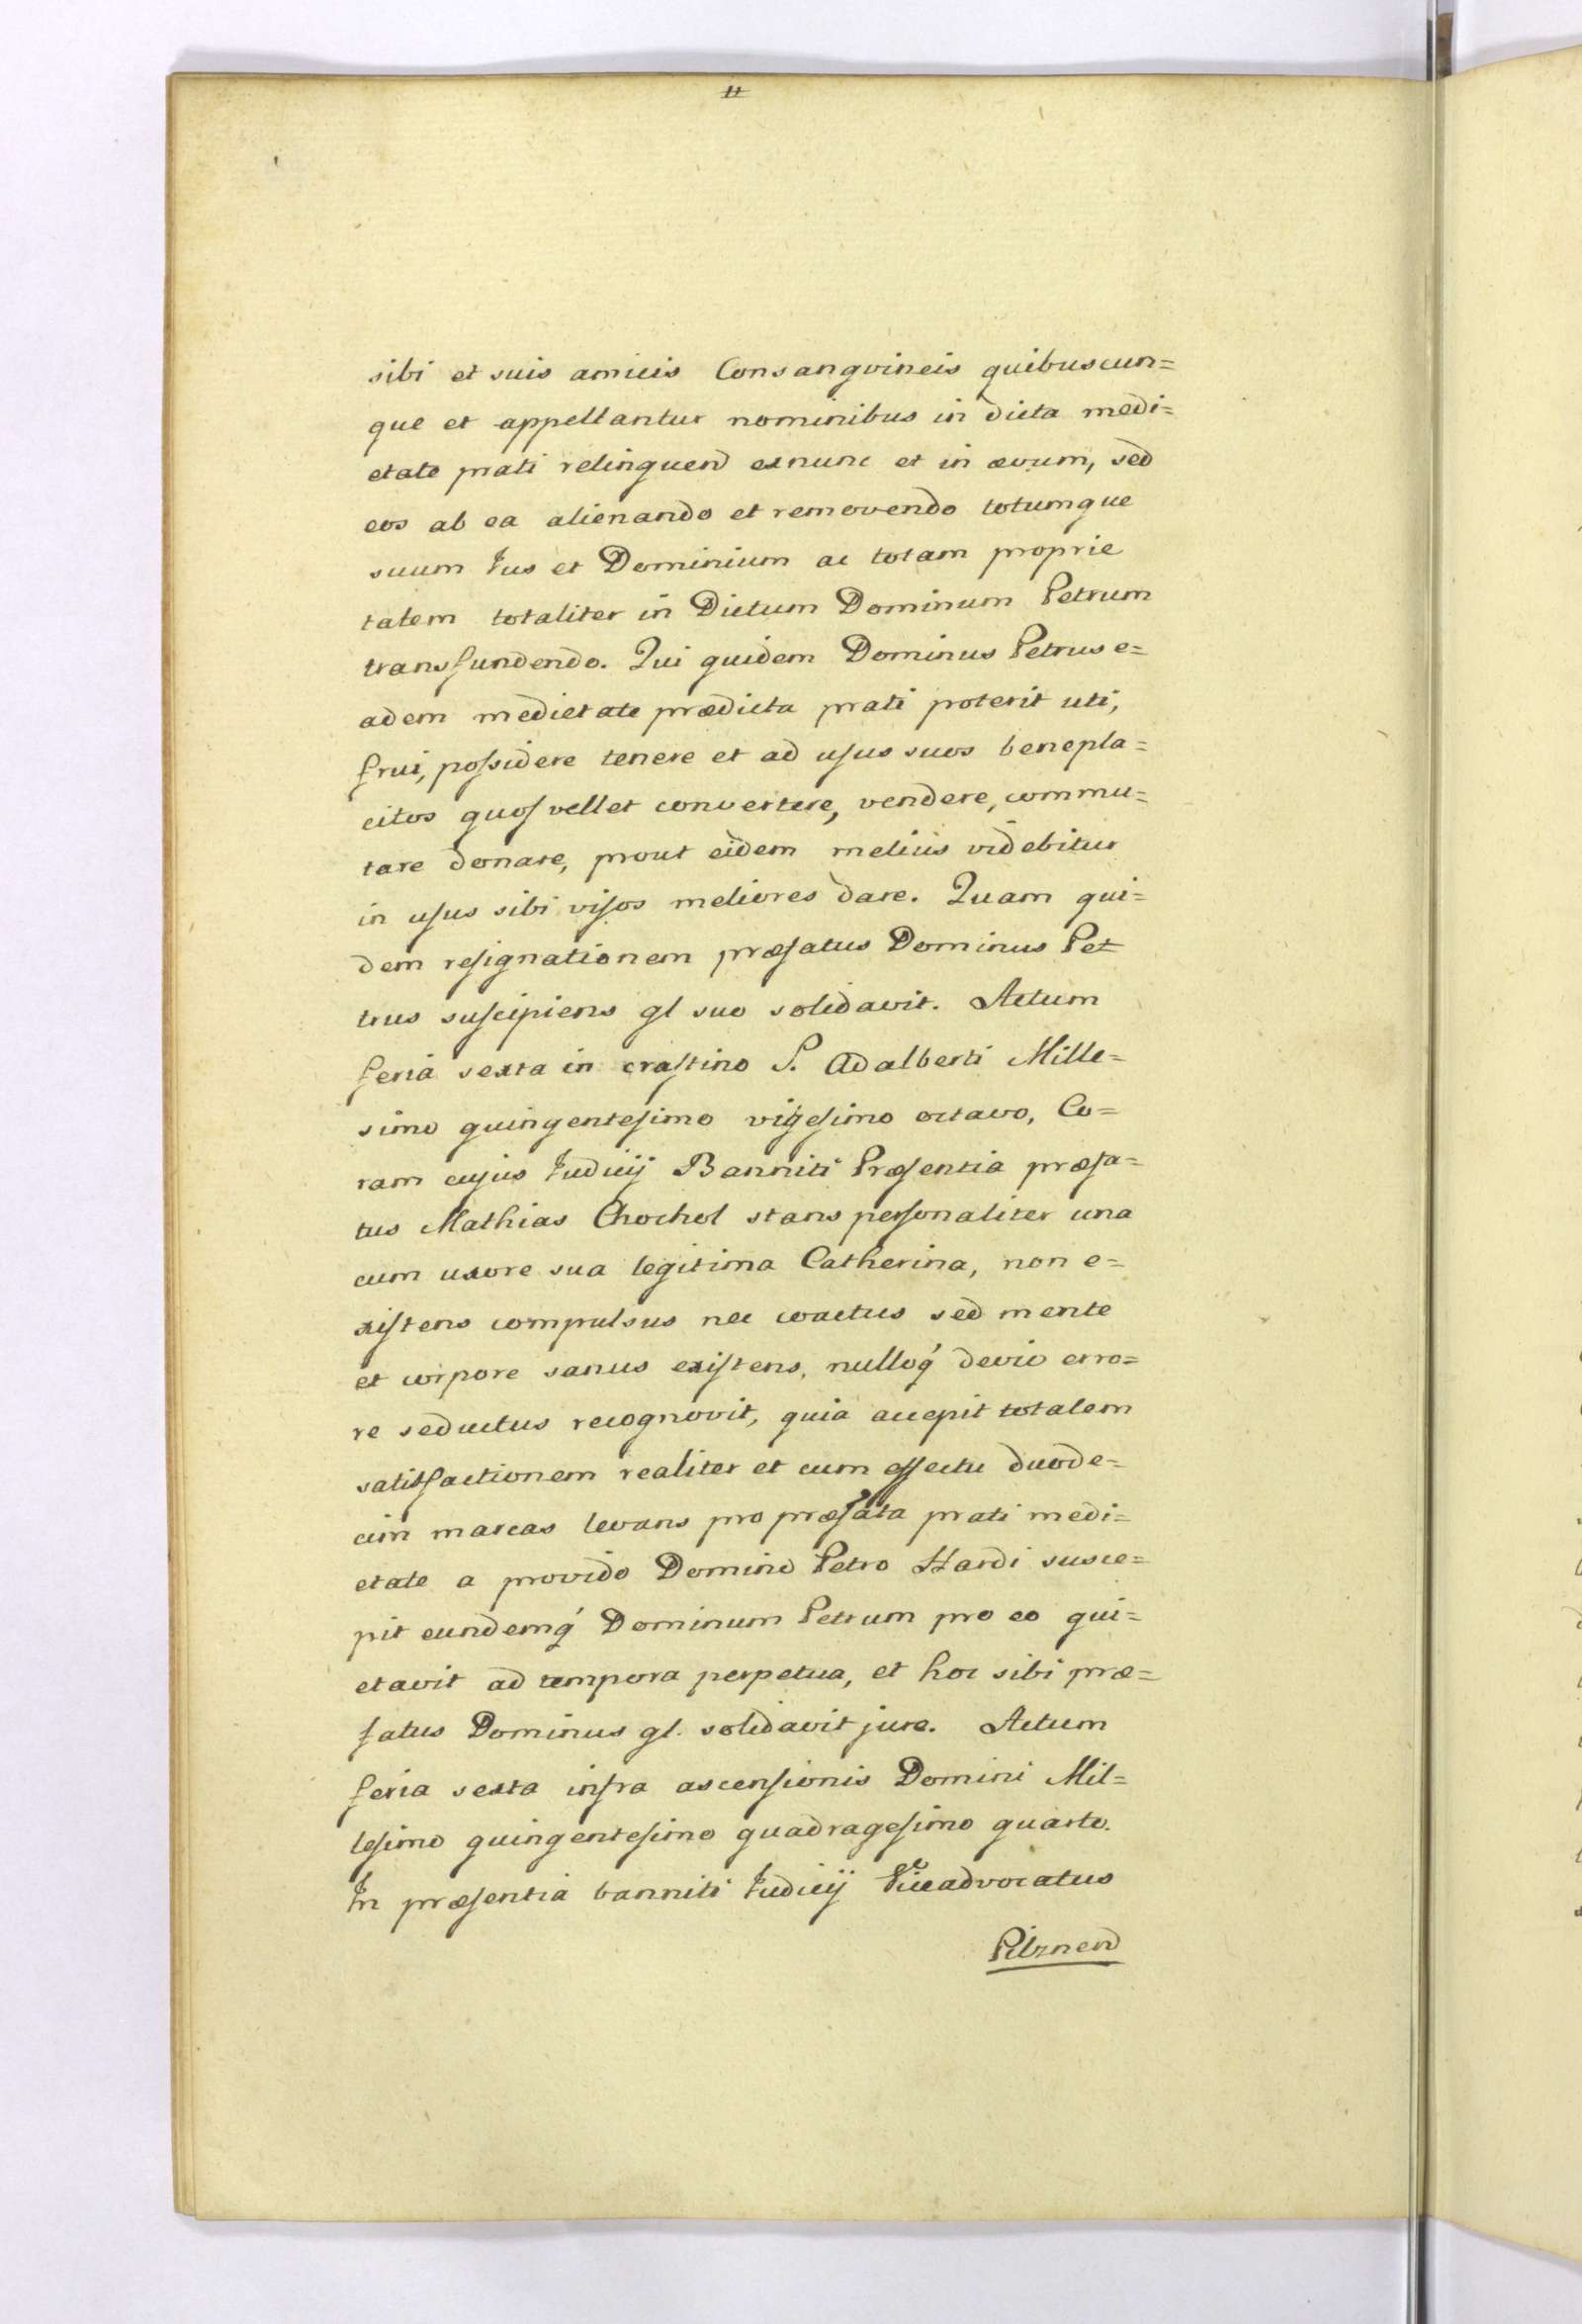 11
sibi et suis amicis Consangvineis quibuscun=
que et appellantur nominibus in dicta medi=
etate prati relinquend exnunc et in ævum, sed
eos ab ea alienando et removendo totumque
suum Jus et Dominium ac totam proprie
tatem totaliter in Dictum Dominum Petrum
transfundendo. Qui quidem Dominus Petrus e=
adem medietate prædicta prati poterit uti,
frui, possidere tenere et ad usus suos benepla=
citos quos vellet convertere, vendere, commu=
tare donare, prout eidem melius videbitur
in usus sibi visos meliores dare. Quam qui=
dem resignationem præfatus Dominus Pet
trus suscipiens gl suo solidavit. Actum
feria sexta in crastino S. Adalberti Mille=
simo quingentesimo vigesimo octavo, Co=
ram cujus Judicij Banniti Præsentia præfa=
tus Mathias Chochol stans personaliter una
cum uxore sua legitima Catherina, non e=
xistens compulsus nec coactus sed mente
et corpore sanus existens, nulloq́ devio erro=
re seductus recognovit, quia accepit totalem
satisfactionem realiter et cum effectu duode=
cim marcas levans pro præfata prati medi=
etate a provido Domino Petro Hardi susce=
pit eundemq́ Dominum Petrum pro eo qui=
etavit ad tempora perpetua, et hoc sibi præ=
fatus Dominus gl. solidavit jure. Actum
feria sexta infra ascensionis Domini Mil=
lesimo quingentesimo quadragesimo quarto.
In præsentia banniti Judicij Viceadvocatus
Pilznen